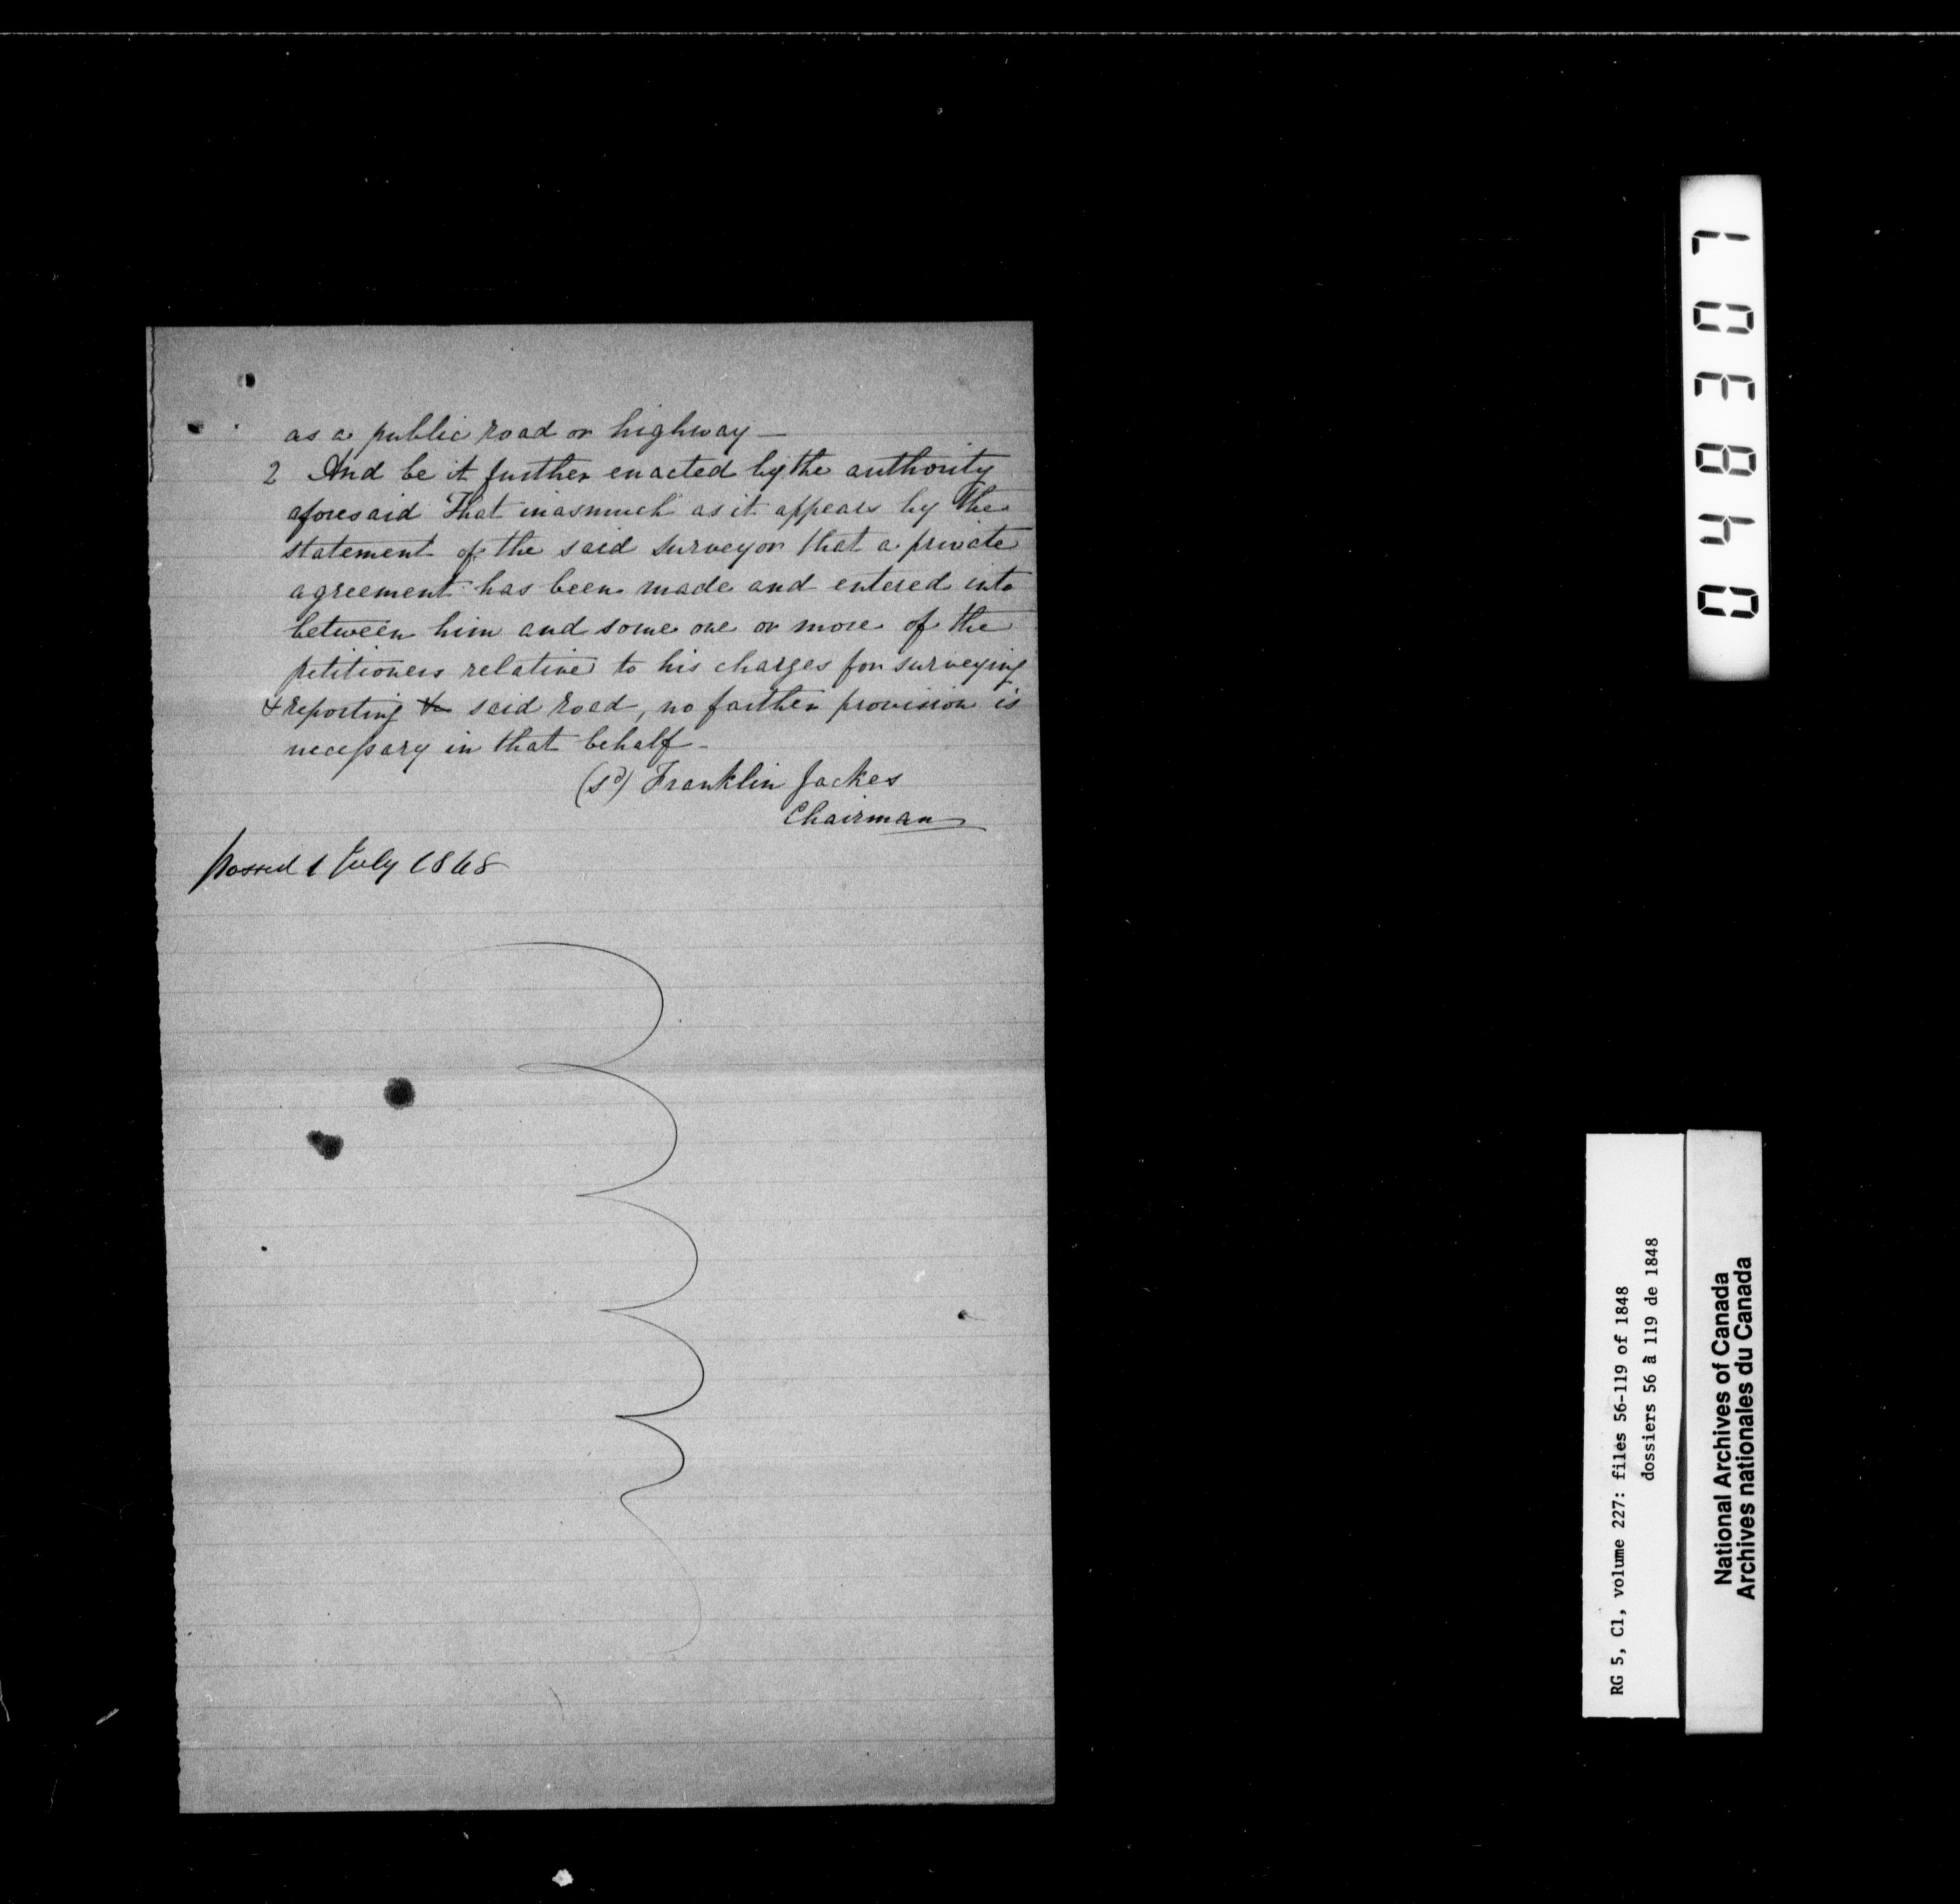 as a public road or highway —
2 And be it further enacted by the authority
aforesaid That inasmuch as it appears by the
statement of the said surveyor that a private
agreement has been made and entered into
between him and some one or more of the
petitioners relative to his charges for surveying
& reporting the said road, no farther provision is
necessary in that behalf -
(sd) Franklin Jackes
Chairman
passed 1 July 1848
048307
RG 5, C1, volume 227: files 56-119 of 1848
dossiers 56 à 119 de 1848
National Archives of Canada
Archives nationales du Canada